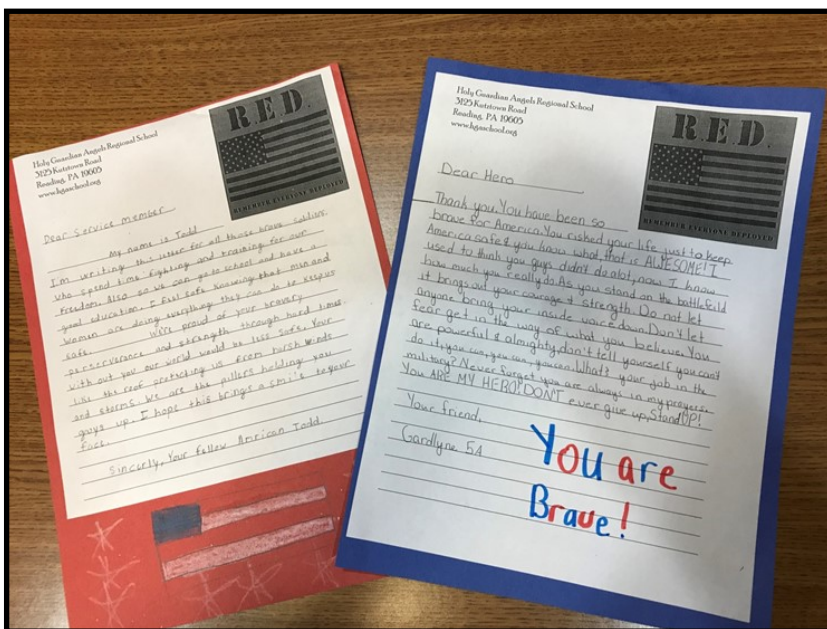 Holy Guardian Angels Regional School
3125 Kutztown Road
Reading, PA 19605
www.hgaschool.org
R.E.D.
REMEMBER EVERYONE DEPLOYED
Dear Service Member
My name is Todd
I'm writing this letter for all those brave
who spend time fighting and training for our
freedom. Also so we can go to school and have a
good education. I feel safe knowing that men and
women are doing everything they can do to keep us
safe. We're proud of your bravery
and strength through hard times.
With out you our world would be less safe. Your
like the roof us from winds
and storms. We are the pillers holding you
guys up. I hope this brings a smile to your
face.
Sincerly, Your fellow American Todd
Holy Guardian Angels Regional School
3125 Kutztown Road
Reading, PA 19605
www.hgaschool.org
R.E.D.
REMEMBER EVERYONE DEPLOYED
Dear Hero
Thank you, You have been so
brave for America. You rished your life just to keep
America safe & you know what, that is AWESOME! I
used to think you guys didn't do alot, now I know
how much you really do. As you stand on the battlefeild
it brings out your courage & strength. Do not let
anyone bring your inside voice down. Don't let
fear get in the way of what you believe. You
are powerful & almighty, don't tell yourself you can't
do it, you can, you can, you can. What's your job in the
military? Never forget you are always in my prayers.
You ARE MY HERO! DON'T ever give up, Stand UP!
Your friend,
Gardlyne 5A
You are
Brave!